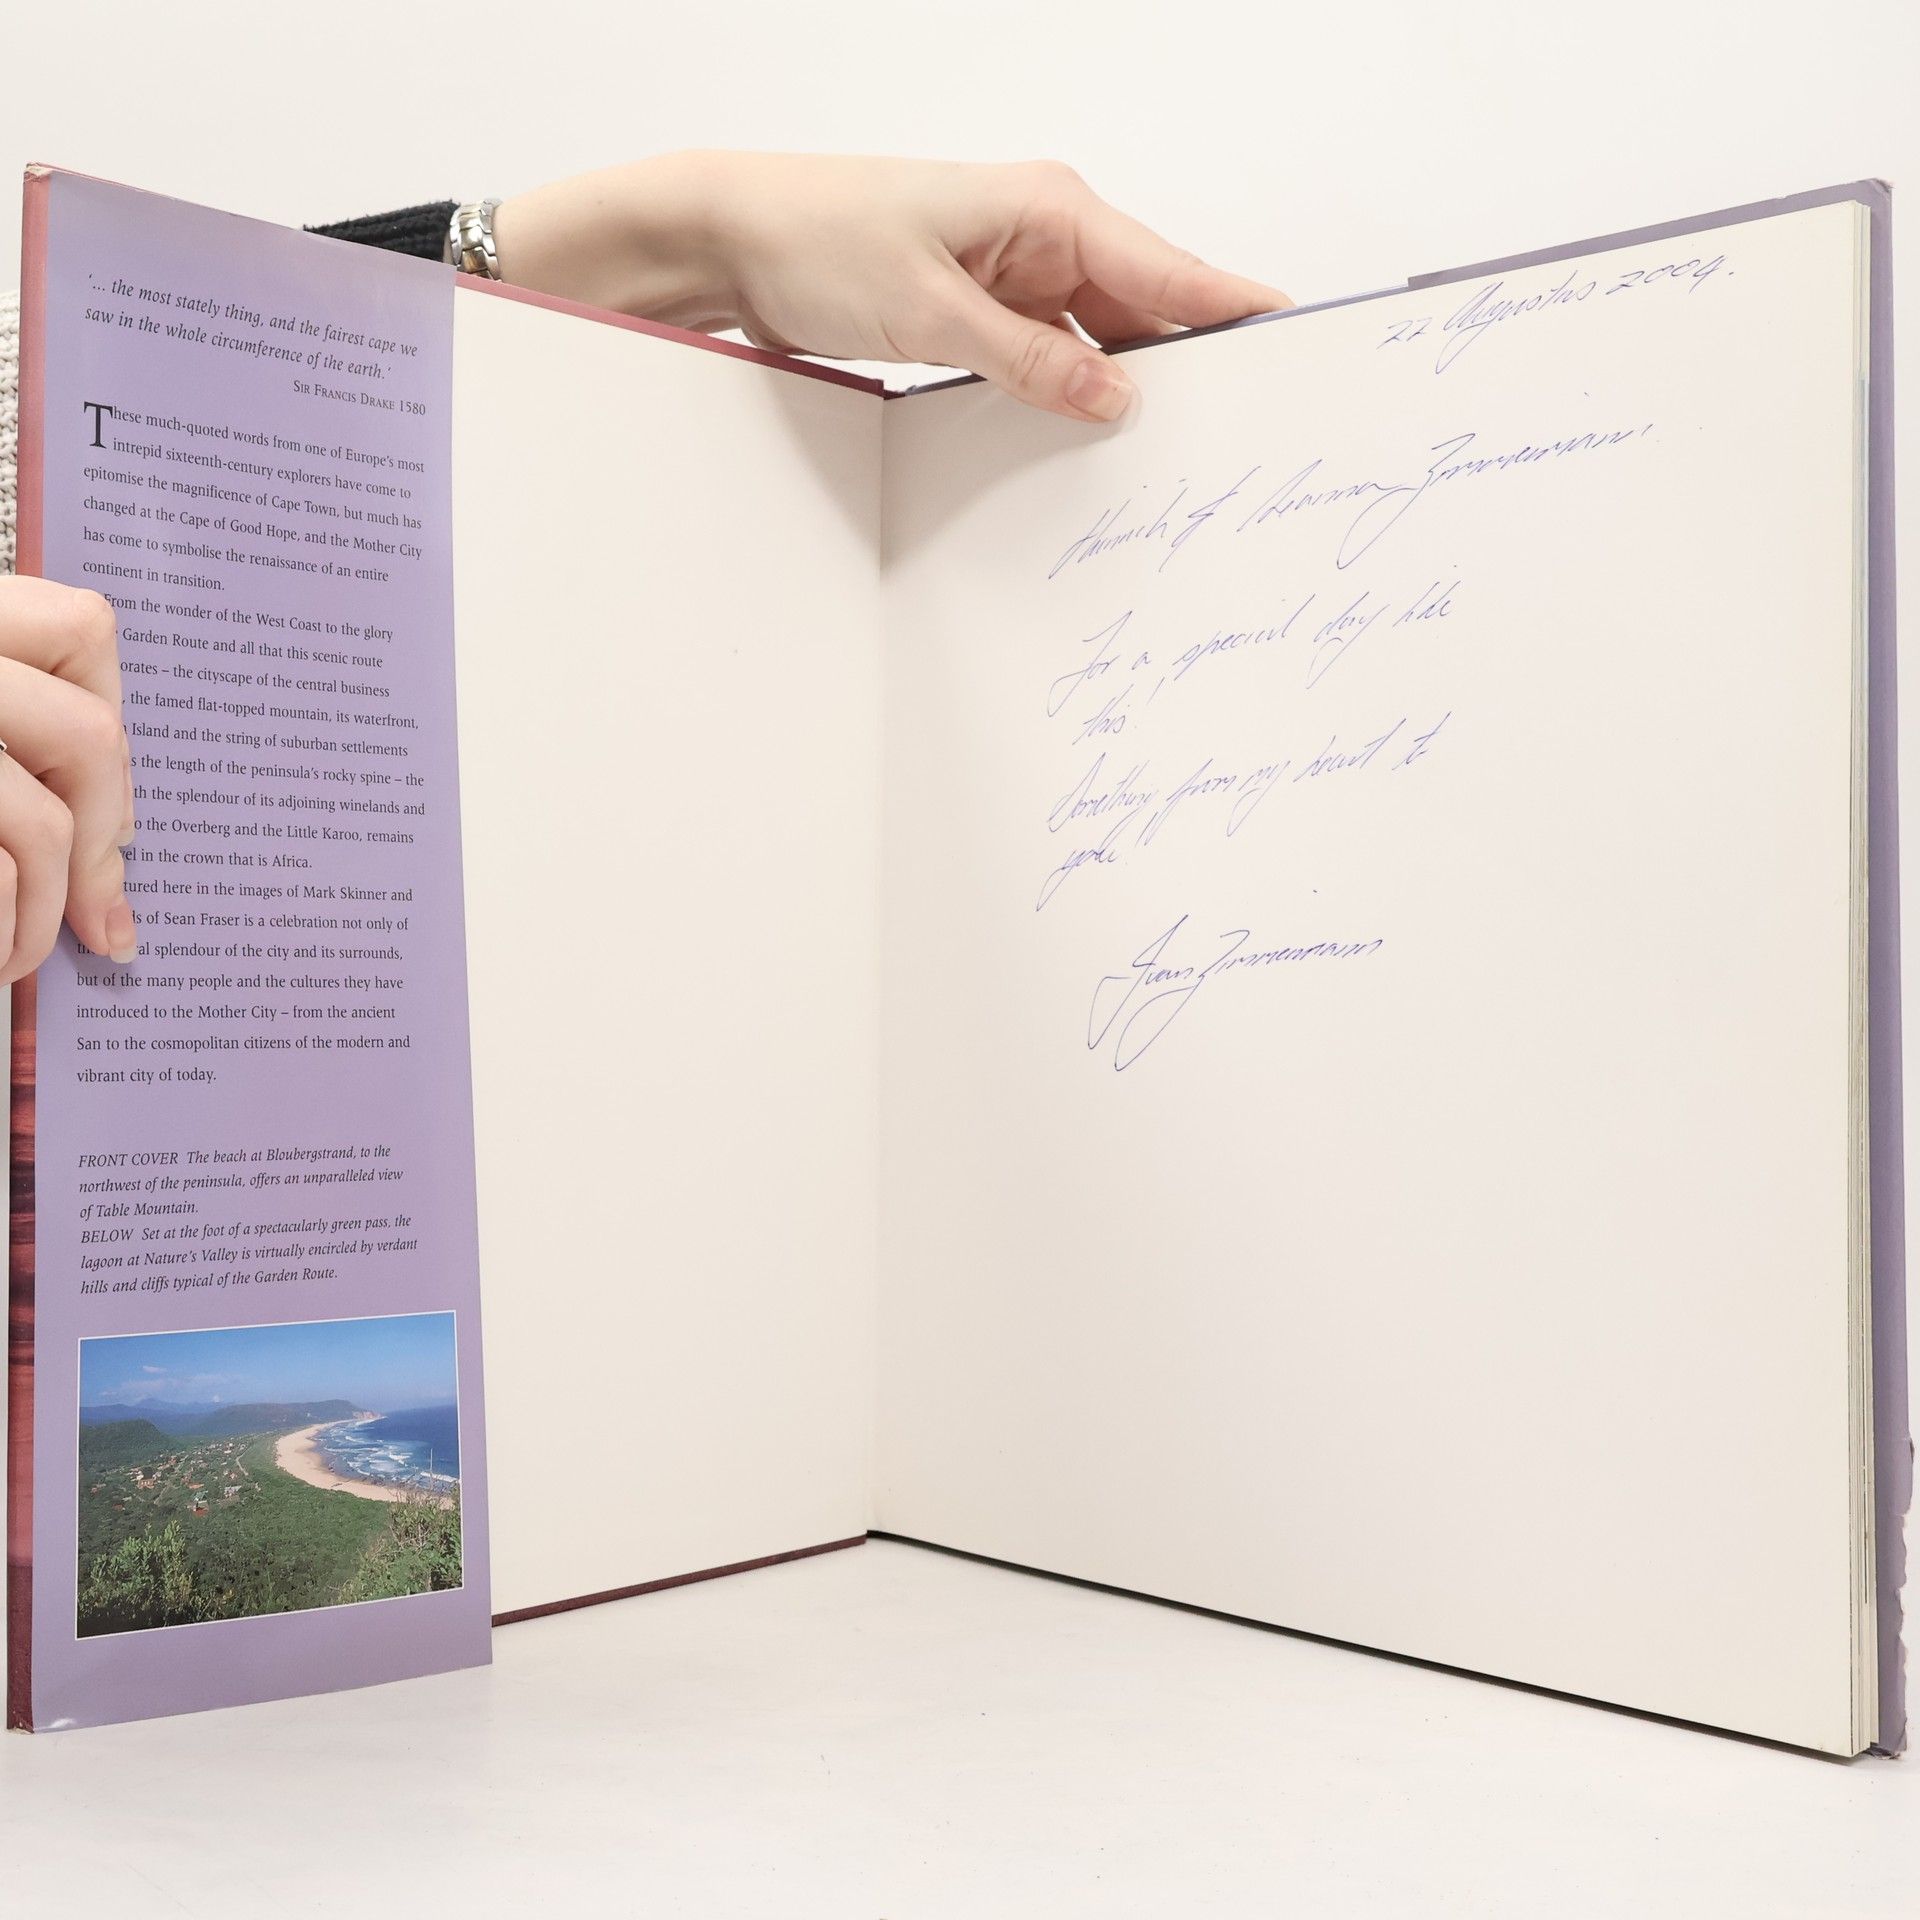 '... the most stately thing, and the fairest cape we
saw in the whole circumference of the earth.'
SIR FRANCIS DRAKE 1580
These much-quoted words from one of Europe's most
intrepid sixteenth-century explorers have come to
epitomise the magnificence of Cape Town, but much has
changed at the Cape of Good Hope, and the Mother City
has come to symbolise the renaissance of an entire
continent in transition.
From the wonder of the West Coast to the glory
Garden Route and all that this scenic route
orates – the cityscape of the central business
, the famed flat-topped mountain, its waterfront,
Island and the string of suburban settlements
s the length of the peninsula's rocky spine – the
th the splendour of its adjoining winelands and
o the Overberg and the Little Karoo, remains
el in the crown that is Africa.
tured here in the images of Mark Skinner and
ds of Sean Fraser is a celebration not only of
al splendour of the city and its surrounds,
but of the many people and the cultures they have
introduced to the Mother City – from the ancient
San to the cosmopolitan citizens of the modern and
vibrant city of today.
FRONT COVER The beach at Bloubergstrand, to the
northwest of the peninsula, offers an unparalleled view
of Table Mountain.
BELOW Set at the foot of a spectacularly green pass, the
lagoon at Nature's Valley is virtually encircled by verdant
hills and cliffs typical of the Garden Route.
22 Augustus 2004.
& Zimmermann.
For a special day like
this!
Something from my heart to
you!
Zimmermann